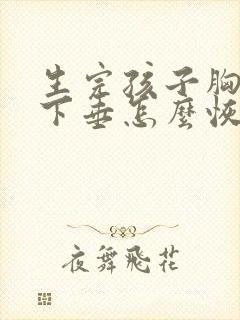 生完孩子胸
下垂怎麼恢
夜舞飛花